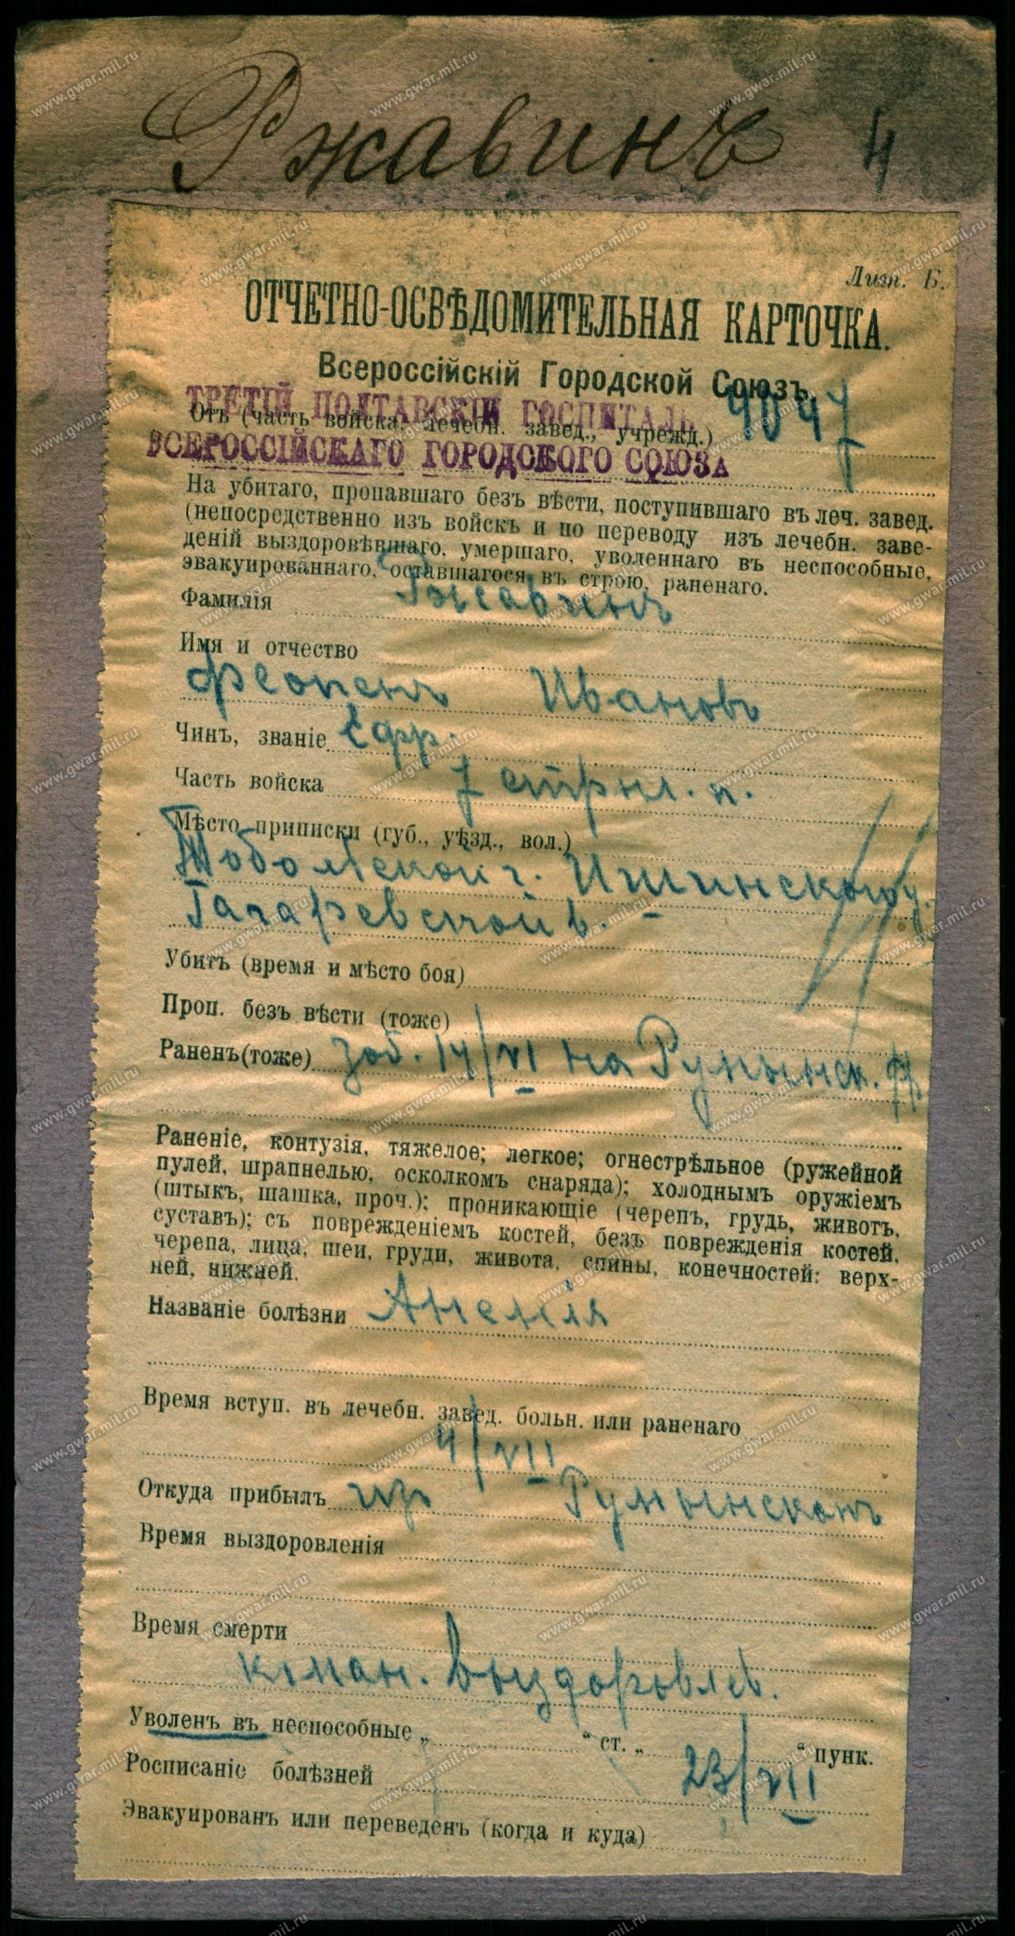 Ржавинъ 4
Лит. Б.
ОТЧЕТНО-ОСВѢДОМИТЕЛЬНАЯ КАРТОЧКА.
Всероссійскій Городской Союзъ.
ТРЕТІЙ ПОЛТАВСКІЙ ГОСПИТАЛЬ 4047
Отъ (часть войска, лечебн. завед., учрежд.)
ВСЕРОССІЙСКАГО ГОРОДСКОГО СОЮЗА
На убитаго, пропавшаго безъ вѣсти, поступившаго въ леч. завед.
(непосредственно изъ войскъ и по переводу изъ лечебн. заве-
деній выздоровѣвшаго, умершаго, уволеннаго въ неспособные,
эвакуированнаго, оставшагося въ строю, раненаго.
Фамилія Ржавинъ
Имя и отчество
Феопенъ Ивановъ
Чинъ, званіе Ефр.
Часть войска 7 стрѣл. п.
Мѣсто приписки (губ., уѣзд., вол.)
Тобольской г. Ишимскаго у.
Гагарьевской в.
Убитъ (время и мѣсто боя)
Проп. безъ вѣсти (тоже)
Раненъ(тоже) заб. 14/VI на Румынск. ф.
Раненіе, контузія, тяжелое; легкое; огнестрѣльное (ружейной
пулей, шрапнелью, осколкомъ снаряда); холоднымъ оружіемъ
(штыкъ, шашка, проч.): проникающіе (черепъ, грудь, животъ,
суставъ); съ поврежденіемъ костей, безъ поврежденія костей,
черепа, лица, шеи, груди, живота, спины, конечностей: верх-
ней, нижней.
Названіе болѣзни Анемія
Время вступ. въ лечебн. завед. больн. или раненаго
4/VII
Откуда прибылъ изъ Румынскаго
Время выздоровленія
Время смерти
коман. выздоровлев.
Уволенъ въ неспособные „ “ ст. „ “ пунк.
Росписаніе болѣзней 23/VII
Эвакуированъ или переведенъ (когда и куда)
www.gwar.mil.ru